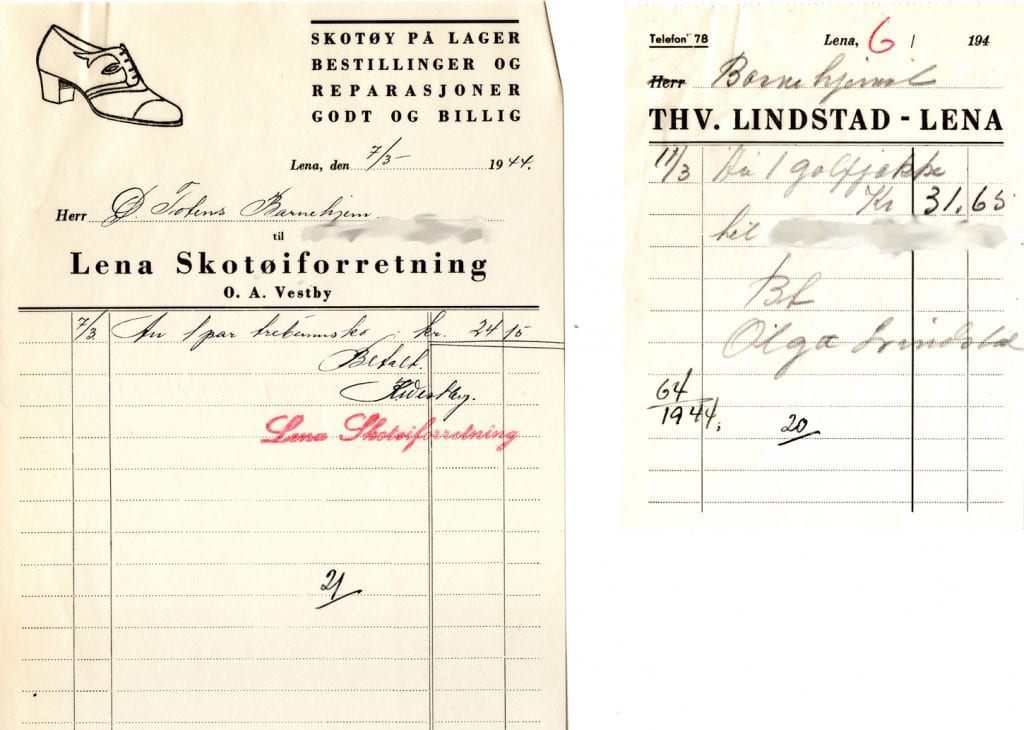 SKOTØY PÅ LAGER
BESTILLINGER OG
REPARASJONER
GODT OG BILLIG
Lena, den 7/3- 1944.
Herr Ø Totens Barnehjem
til
Lena Skotøiforretning
O. A. Vestby
7/3 An 1 par trebunnsko kr. 24 15
Betalt.
Lena Skotøiforretning
21
Telefon 78
Lena, 6 / 194
Herr Barnehjemmet
THV. LINDSTAD - LENA
11/3 An 1 golfjakke
Kr 31,65
til
Bt
Olga Lindstad
64
1944,
20